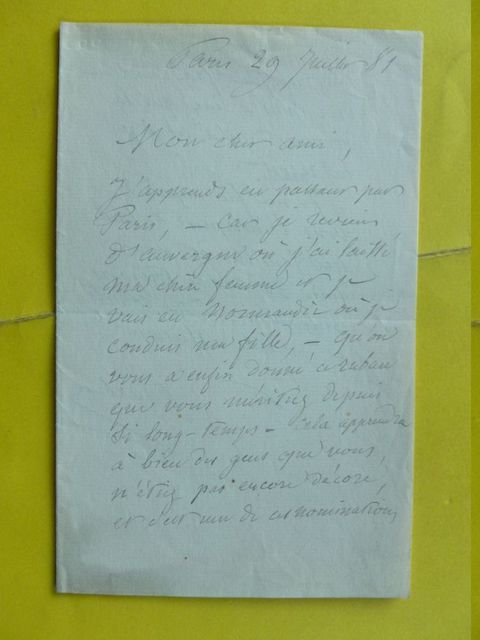 Paris 29 Juillet 81
Mon cher ami,
J'apprends en passant par
Paris, – car je reviens
d'auvergne où j'ai laissé
ma chère femme et je
vais en Normandie où je
conduis ma fille, – qu'on
vous a enfin donné ce ruban
que vous méritiez depuis
si long-temps – cela apprendra
à bien des gens que vous
n'étiez pas encore décoré,
et c'est une de ces nominations